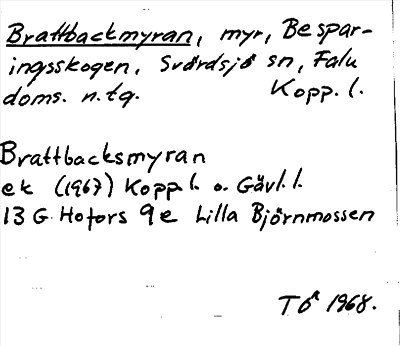 Brattbackmyran, myr, Bespar-
ingsskogen, Svärdsjö sn, Falu
doms. n.tg. Kopp. l.
Brattbacksmyran
ek (1967) Kopp l. o. Gävl. l.
13 G Hofors 9e Lilla Björnmossen
TÖ 1968.